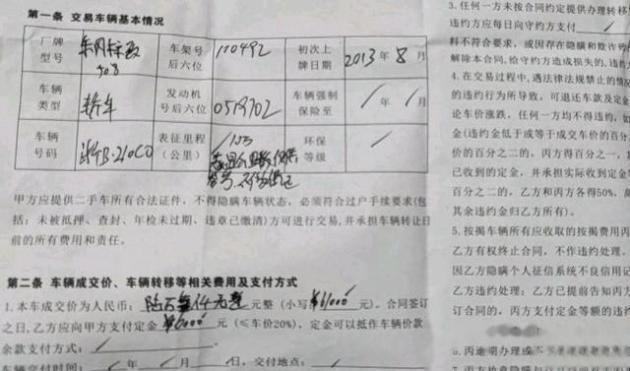 第一条 交易车辆基本情况
厂牌型号 东风标致 408 车架号后六位 110492 初次上牌日期 2013年8月
车辆类型 轿车 发动机号后六位 0519702 车辆强制保险至 / 年 / 月
车辆号码 表征里程(公里) 环保等级 /
甲方应提供二手车所有合法证件,不得隐瞒车辆状态,必须符合过户手续要求(包
括:未被抵押、查封、年检未过期、违章已缴清)方可进行交易,并承担车辆转让日
前的所有费用和责任。
第二条 车辆成交价、车辆转移等相关费用及支付方式
1.本车成交价为人民币:陆万壹仟元整 元整(小写¥61000 元)。合同签订
之日,乙方应向甲方支付定金 ¥6000 元(≤车价20%),定金可以抵作车辆价款
余款支付方式: /
车辆交付时间: 年 / 月 日,交付地点: /
3.任何一方未按合同约定提供办理转移
违约方应每日向守约方支付
料不符合要求,或因存在隐瞒和欺诈
解除本合同,给守约方造成损失的,违
4.在交易过程中,遇法律法规禁止的情
的违约行为所导致,可退还车款及定金
论车价涨跌,任何一方均不得违约,如
金(违约金低于或等于成交车价的百分
价的百分之二的,丙方得百分之一,
已收到的定金,并承担实际收到定金
百分之二的,乙方和丙方各得50%,
其余违约金归乙方所有)。
5.按揭车辆所有应收取的按揭费用丙
乙方有权终止合同,不作违约处理,
因乙方隐瞒个人征信系统不良信用记
乙方违约处理;乙方已提前告知丙方
订合同的,丙方支付定金等额的违约